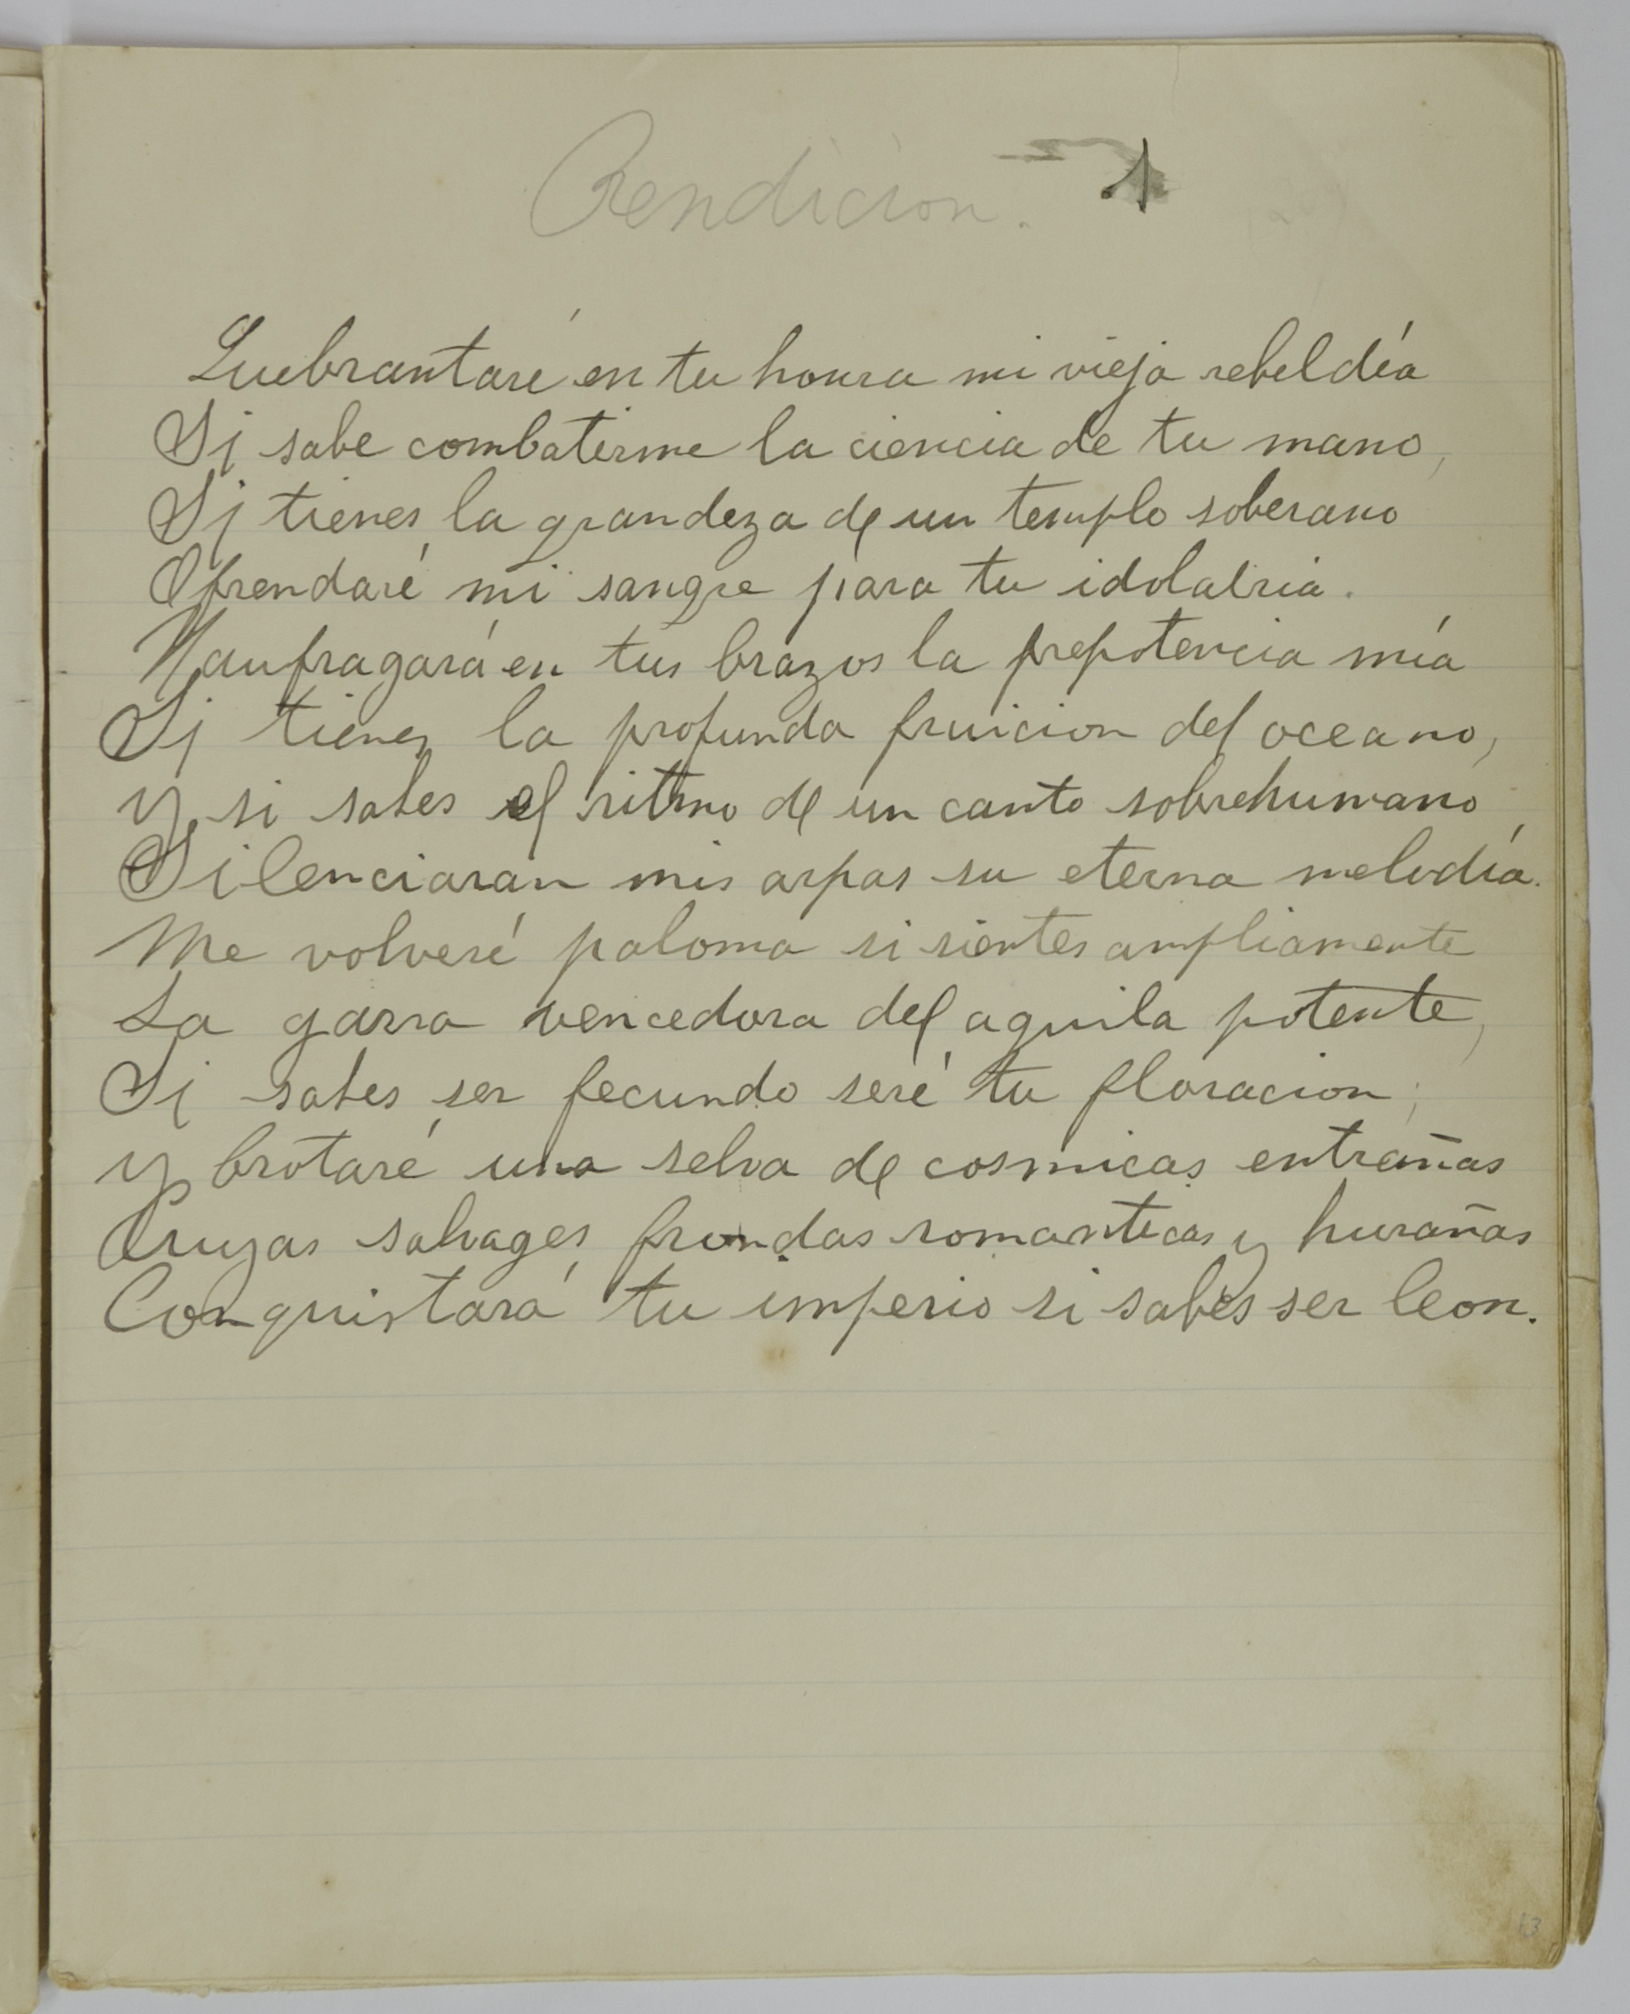 Rendicion. 1
Quebrantaré en tu honra mi vieja rebeldía
Si sabe combatirme la ciencia de tu mano,
Si tienes la grandeza de un templo soberano
Ofrendaré mi sangre para tu idolatria.
Naufragará en tus brazos la prepotencia mía
Si tienes la profunda fruicion del oceano,
y si sabes el ritmo de un canto sobrehumano,
Silenciaran mis arpas su eterna melodía.
Me volveré paloma si sientes ampliamente
La garra vencedora del aguila potente,
Si sabes ser fecundo seré tu floracion;
y brotaré una selva de cosmicas entrañas
Cuyas salvages frondas romanticas y hurañas
Conquistará tu imperio si sabes ser leon.
13